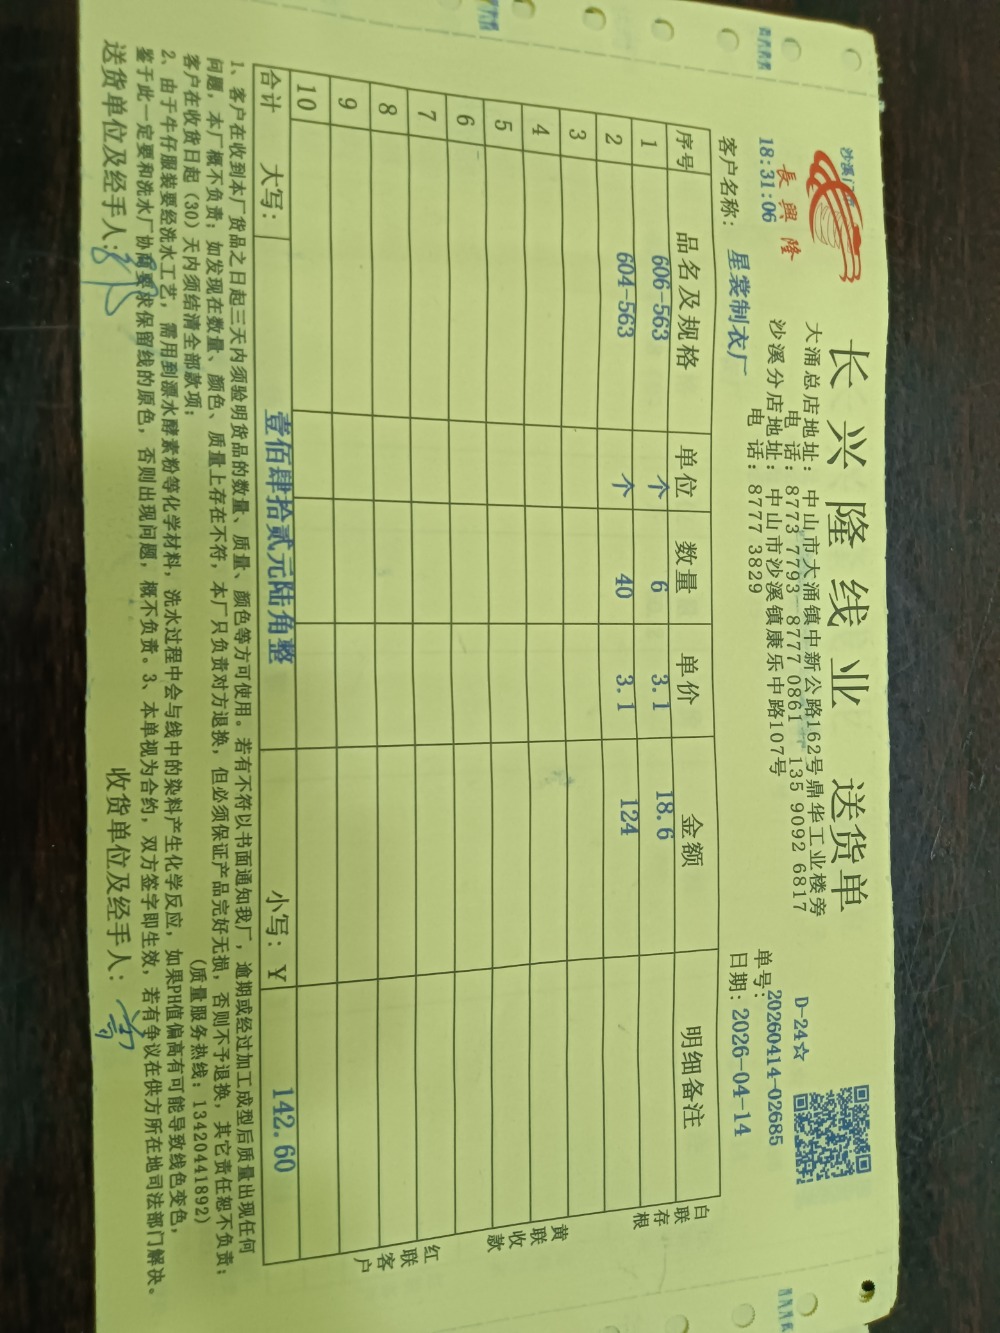 長興隆
18:31:06
长兴隆线业 送货单
大涌总店地址：中山市大涌镇中新公路162号鼎华工业楼旁
电 话：8773 7793 8777 0861 135 9092 6817
沙溪分店地址：中山市沙溪镇康乐中路107号
电 话：8777 3829
D-24☆
单号：20260414-02685
日期：2026-04-14
客户名称：星裳制衣厂
序号 品名及规格 单位 数量 单价 金额 明细备注
1 606-563 个 6 3.1 18.6
2 604-563 个 40 3.1 124
3
4
5
6
7
8
9
10
合计 大写：壹佰肆拾贰元陆角整 小写：Y 142.60
白联存根
黄联收款
红联客户
1、客户在收到本厂货品之日起三天内须验明货品的数量、质量、颜色等方可使用。若有不符以书面通知我厂，逾期或经过加工成型后质量出现任何
问题，本厂概不负责；如发现在数量、颜色、质量上存在不符，本厂只负责对方退换，但必须保证产品完好无损，否则不予退换，其它责任恕不负责；
客户在收货日起（30）天内须结清全部款项； （质量服务热线：13420441892）
2、由于牛仔服装要经洗水工艺，需用到漂水酵素粉等化学材料，洗水过程中会与线中的染料产生化学反应，如果PH值偏高有可能导致线色变色，
鉴于此一定要和洗水厂协商要求保留线的原色，否则出现问题，概不负责。3、本单视为合约，双方签字即生效，若有争议在供方所在地司法部门解决。
送货单位及经手人：
收货单位及经手人：